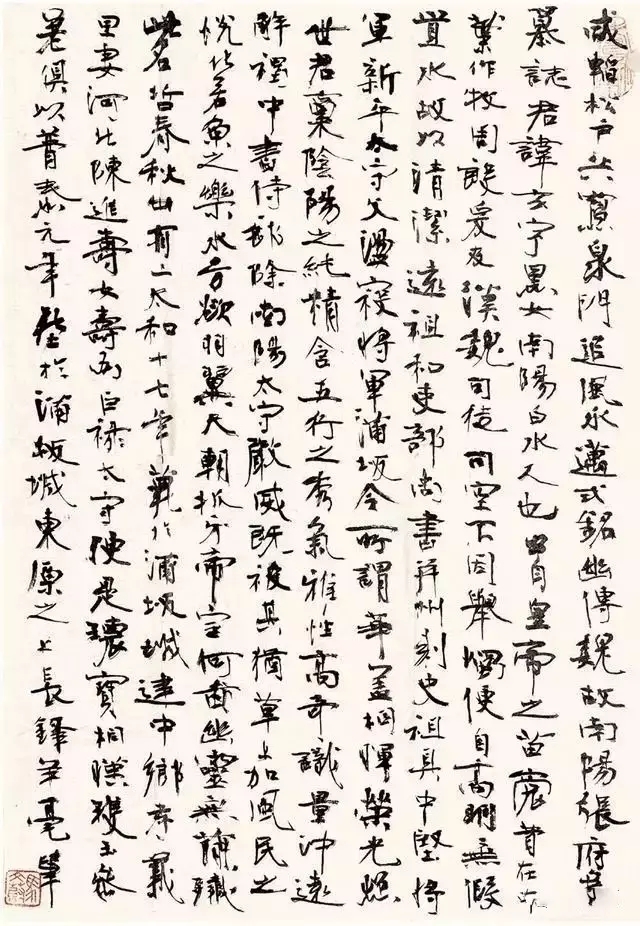 咸韜松戶共寒泉門追風永邁式銘幽傳魏故南陽張府君
墓誌君諱玄字黑女南陽白水人也出自皇帝之苗裔昔在中
葉作牧周殷爰及漢魏司徒司空不因舉燭便自高明無假
置水故以清潔遠祖和吏部尚書并州刺史祖具中堅將
軍新平太守父盪寇將軍蒲坂令所謂華蓋相暉榮光照
世君稟陰陽之純精含五行之秀氣雅性高奇識量沖遠
解褐中書侍郎除南陽太守嚴威既被其猶草上加風民之
悅化若魚之樂水方欲羽翼天朝抓牙帝室何啚幽靈無簡殲
此名哲春秋卅有二太和十七年薨於蒲坂城建中鄉孝義
里妻河北陳進壽女壽為巨祿太守便是瓌寶相暎瓊玉參
差俱以普泰元年塟於蒲坂城東原之上長鋒羊毫筆